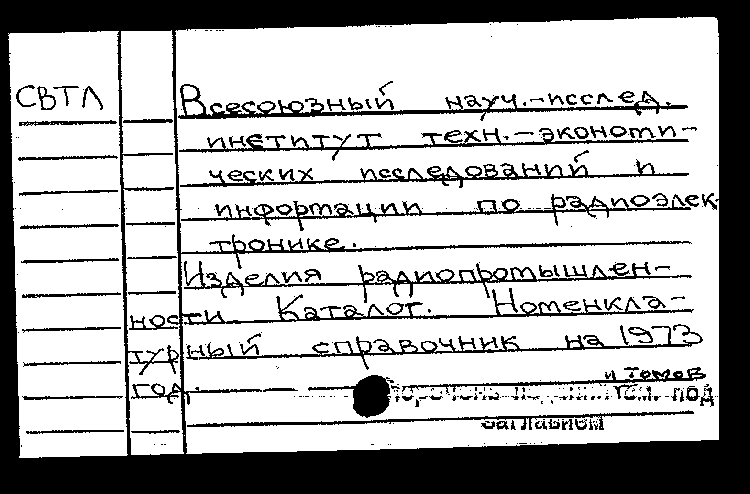 СВТЛ
Всесоюзный науч.-исслед.
институт техн.-экономи-
ческих исследований и
информации по радиоэлек
тронике.
Изделия радиопромышлен-
ности. Каталог. Номенкла-
турный справочник на 1973
год.
и томов
см. под
заглавием